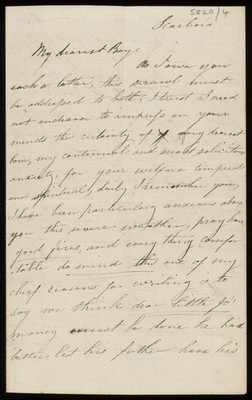 5820/4
Scarboro
My dearest Boys
As I owe you
each a letter, this scrawl must
be addressed to both, I trust I need
not endeavor to impress on your
minds the certainty of my dearest
love, my continual and most solicitous
anxiety for your welfare temporal
and spiritual, daily I remember you,
I have been particularly anxious about
you this severe weather, pray have
good fires, and every thing comfor
table do mind this one of my
chief reasons for writing is to
say we think dear little Jo's
money must be done he had
better let his father have his